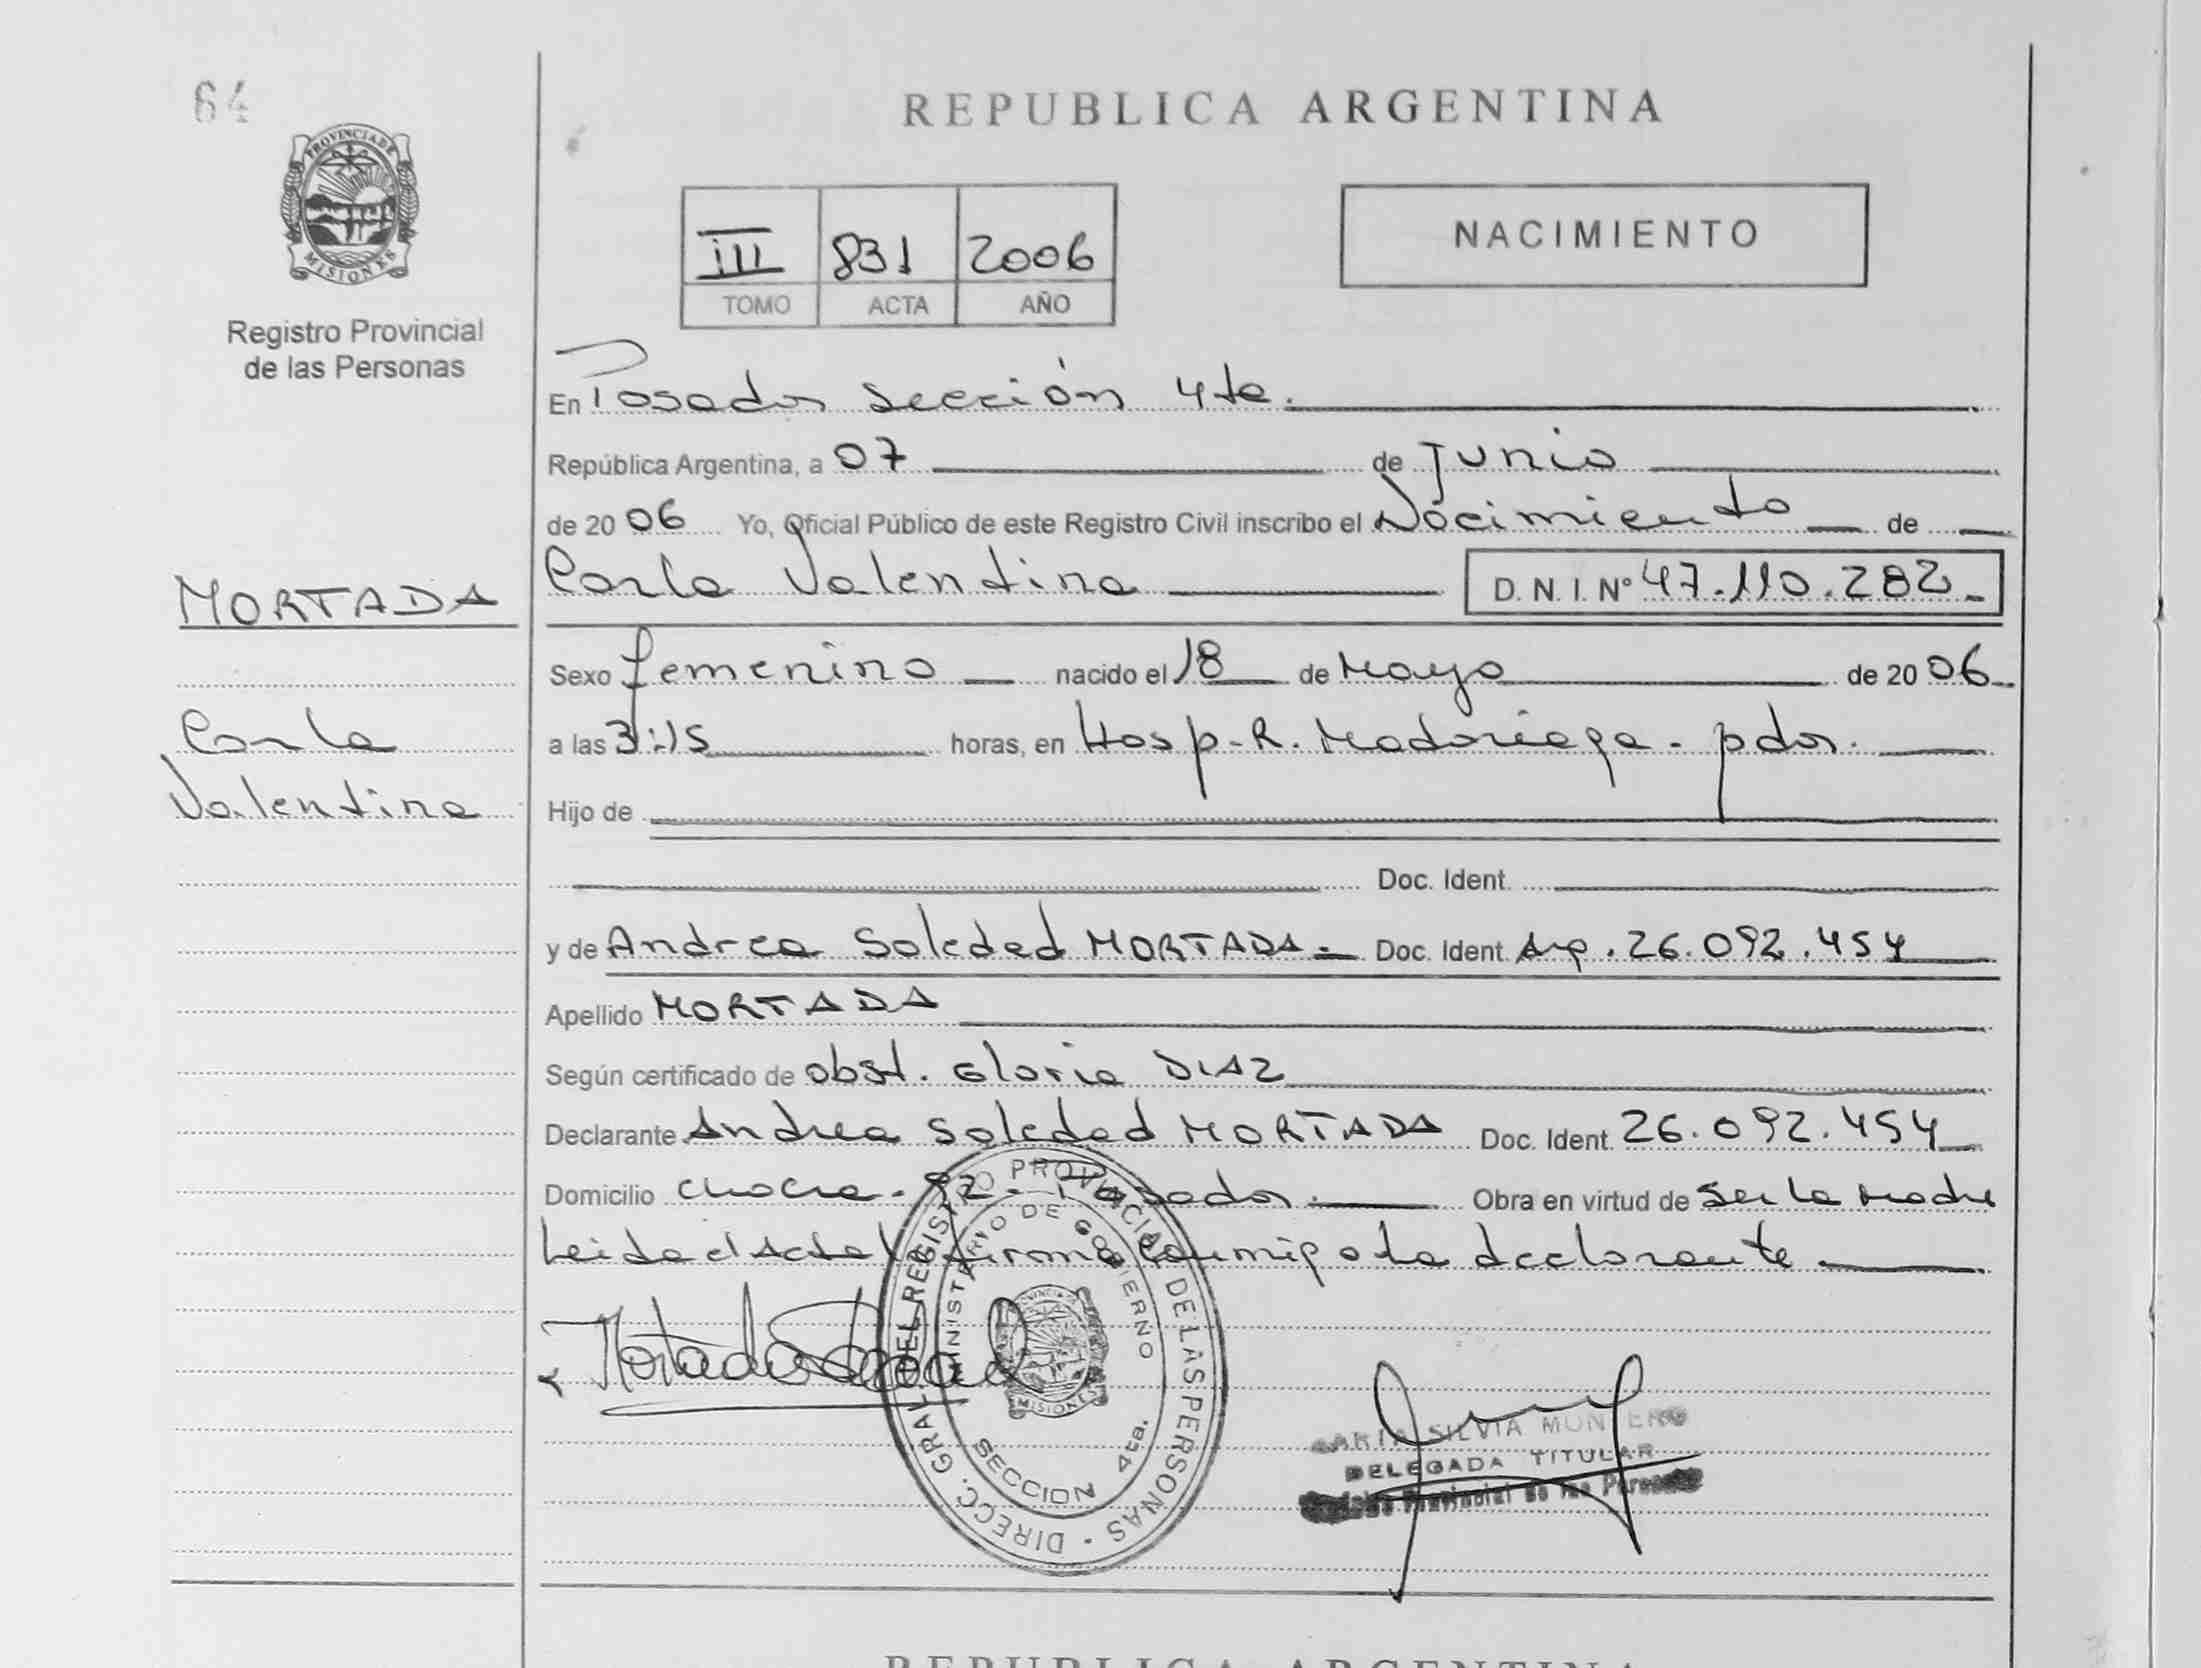 64
REPUBLICA ARGENTINA
PROVINCIA DE
MISIONES
Registro Provincial
de las Personas
III 831 2006
TOMO ACTA AÑO
NACIMIENTO
En Posadas Sección 4ta.
República Argentina, a 07 de Junio
de 20 06 Yo, Oficial Público de este Registro Civil inscribo el Nacimiento de
MORTADA
Carla Valentina D. N. I. Nº 47.110.282
Sexo femenino nacido el 18 de Mayo de 20 06
Carla
a las 3:15 horas, en Hosp. R. Madariaga - pdas.
Valentina
Hijo de
Doc. Ident.
y de Andrea Soledad MORTADA Doc. Ident. Arg. 26.092.454
Apellido MORTADA
Según certificado de obst. Gloria DIAZ
Declarante Andrea Soledad MORTADA Doc. Ident. 26.092.454
Domicilio Posadas. Obra en virtud de ser la madre
Leida el Acta firma conmigo la declarante
Mortada Soledad
DIRECC. GRAL. DEL REGISTRO PROVINCIAL DE LAS PERSONAS
MINISTERIO DE GOBIERNO
PROVINCIA DE
MISIONES
SECCION 4ta.
SILVIA MONTERO
DELEGADA TITULAR
Provincial de las Personas
REPUBLICA ARGENTINA